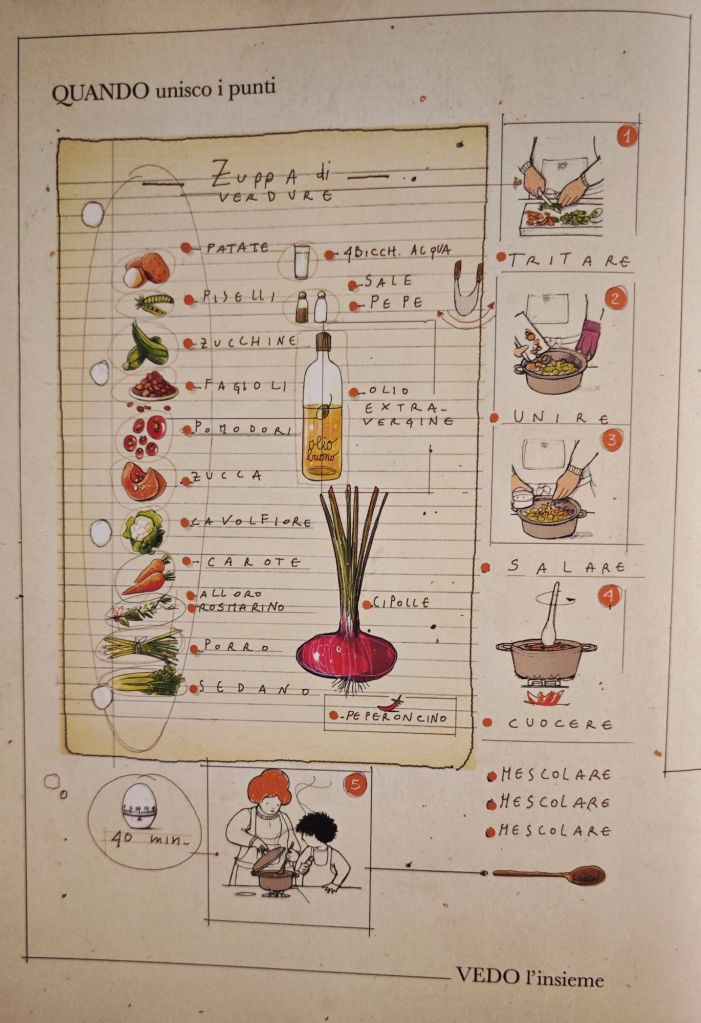 QUANDO unisco i punti
ZUPPA di
VERDURE
PATATE
PISELLI
ZUCCHINE
FAGIOLI
POMODORI
ZUCCA
CAVOLFIORE
CAROTE
ALLORO
ROSMARINO
PORRO
SEDANO
4 BICCH. ACQUA
SALE
PEPE
OLIO
EXTRA-
VERGINE
olio
buono
CIPOLLE
PEPERONCINO
1
TRITARE
2
UNIRE
3
SALARE
4
CUOCERE
40 min.
5
MESCOLARE
MESCOLARE
MESCOLARE
VEDO l'insieme